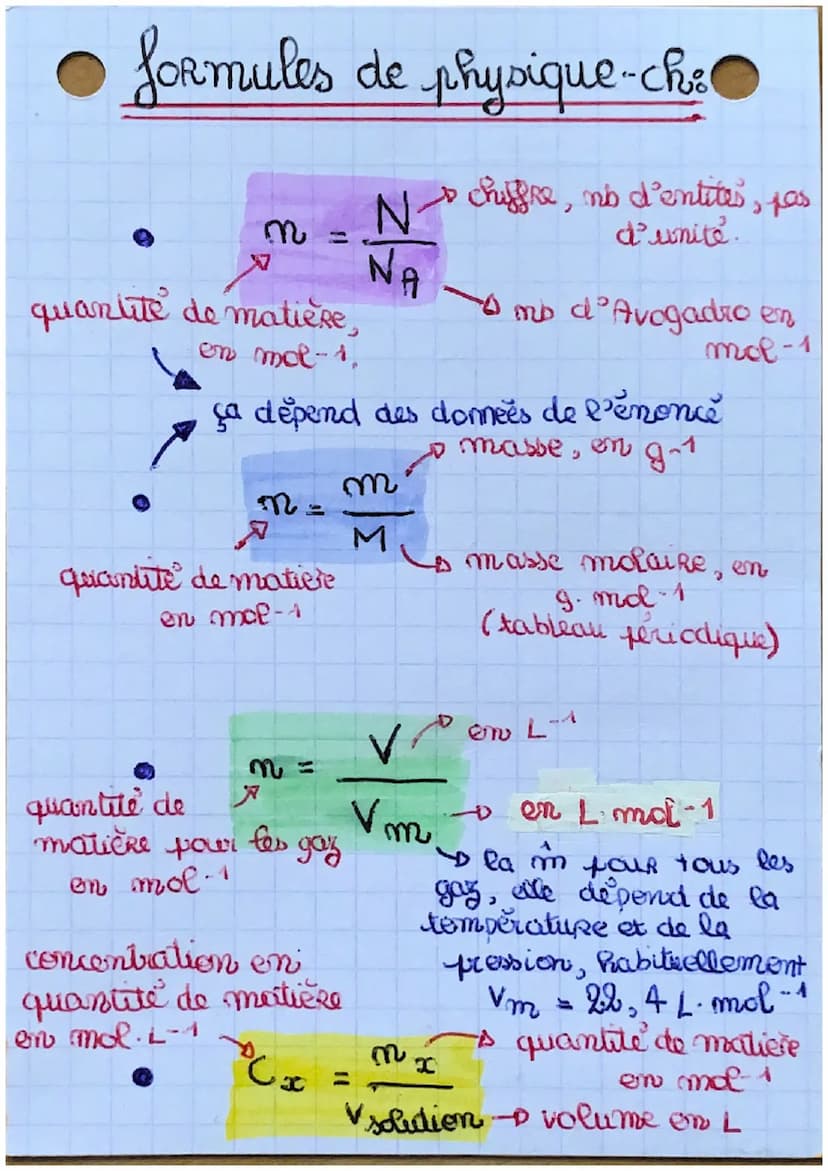 formules de physique-ch:
n = N / NA
chiffre, nb d'entités, pas
d'unité.
quantité de matière,
en mol-1.
nb d'Avogadro en
mol-1
ça dépend des données de l'énoncé
n = m / M
masse, en g-1
quantité de matière
en mol-1
masse molaire, en
g. mol-1
(tableau périodique)
n = V / Vm
en L-1
quantité de
matière pour les gaz
en mol-1
en L.mol-1
la m̂ pour tous les
gaz, elle dépend de la
température et de la
pression, habituellement
Vm = 22,4 L.mol-1
concentration en
quantité de matière
en mol.L-1
Cx = nx / Vsolution
quantité de matière
en mol-1
volume en L